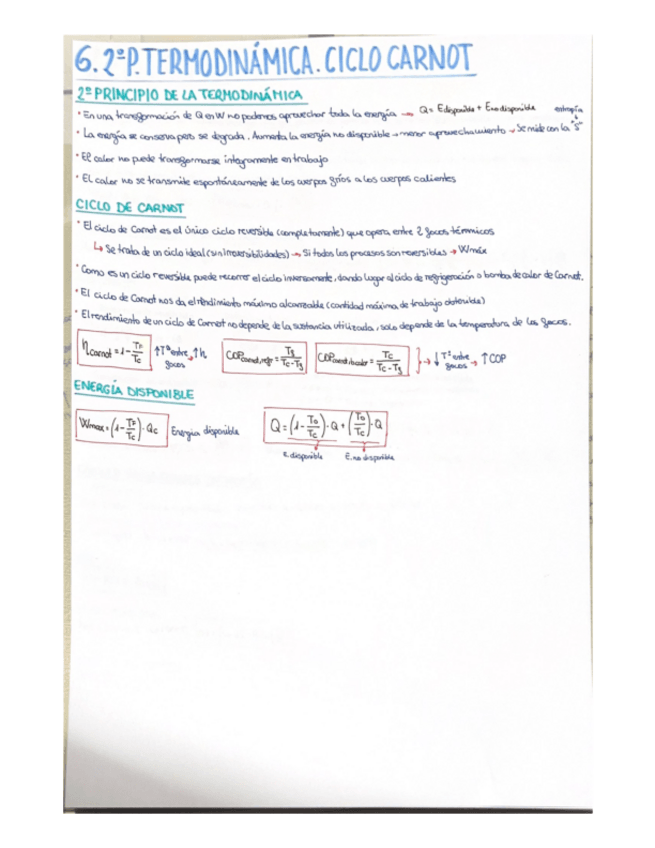 6. 2ºP. TERMODINÁMICA. CICLO CARNOT
2º PRINCIPIO DE LA TERMODINÁMICA
· En una transformación de Q en W no podemos aprovechar toda la energía → Q = E disponible + E no disponible
entropía
· La energía se conserva pero se degrada. Aumenta la energía no disponible → menor aprovechamiento → Se mide con la "S"
· El calor no puede transformarse íntegramente en trabajo
· EL calor no se transmite espontáneamente de los cuerpos fríos a los cuerpos calientes
CICLO DE CARNOT
· El ciclo de Carnot es el único ciclo reversible (completamente) que opera entre 2 focos térmicos
↳ Se trata de un ciclo ideal (sin irreversibilidades) → Si todos los procesos son reversibles → Wmáx
· Como es un ciclo reversible puede recorrer el ciclo inversamente, dando lugar al ciclo de refrigeración o bomba de calor de Carnot.
· El ciclo de Carnot nos da el rendimiento máximo alcanzable (cantidad máxima de trabajo obtenible)
· El rendimiento de un ciclo de Carnot no depende de la sustancia utilizada, solo depende de la temperatura de los focos.
η carnot = 1 - TF/TC ↑Tª entre focos → ↑η COP carnot, refr = Tf/(Tc - Tf) COP carnot, b.calor = Tc/(Tc - Tf) → ↓Tª entre focos → ↑COP
ENERGÍA DISPONIBLE
Wmax = (1 - TF/TC) · Qc Energía disponible Q = (1 - To/Tc) · Q + (To/Tc) · Q
E. disponible E. no disponible